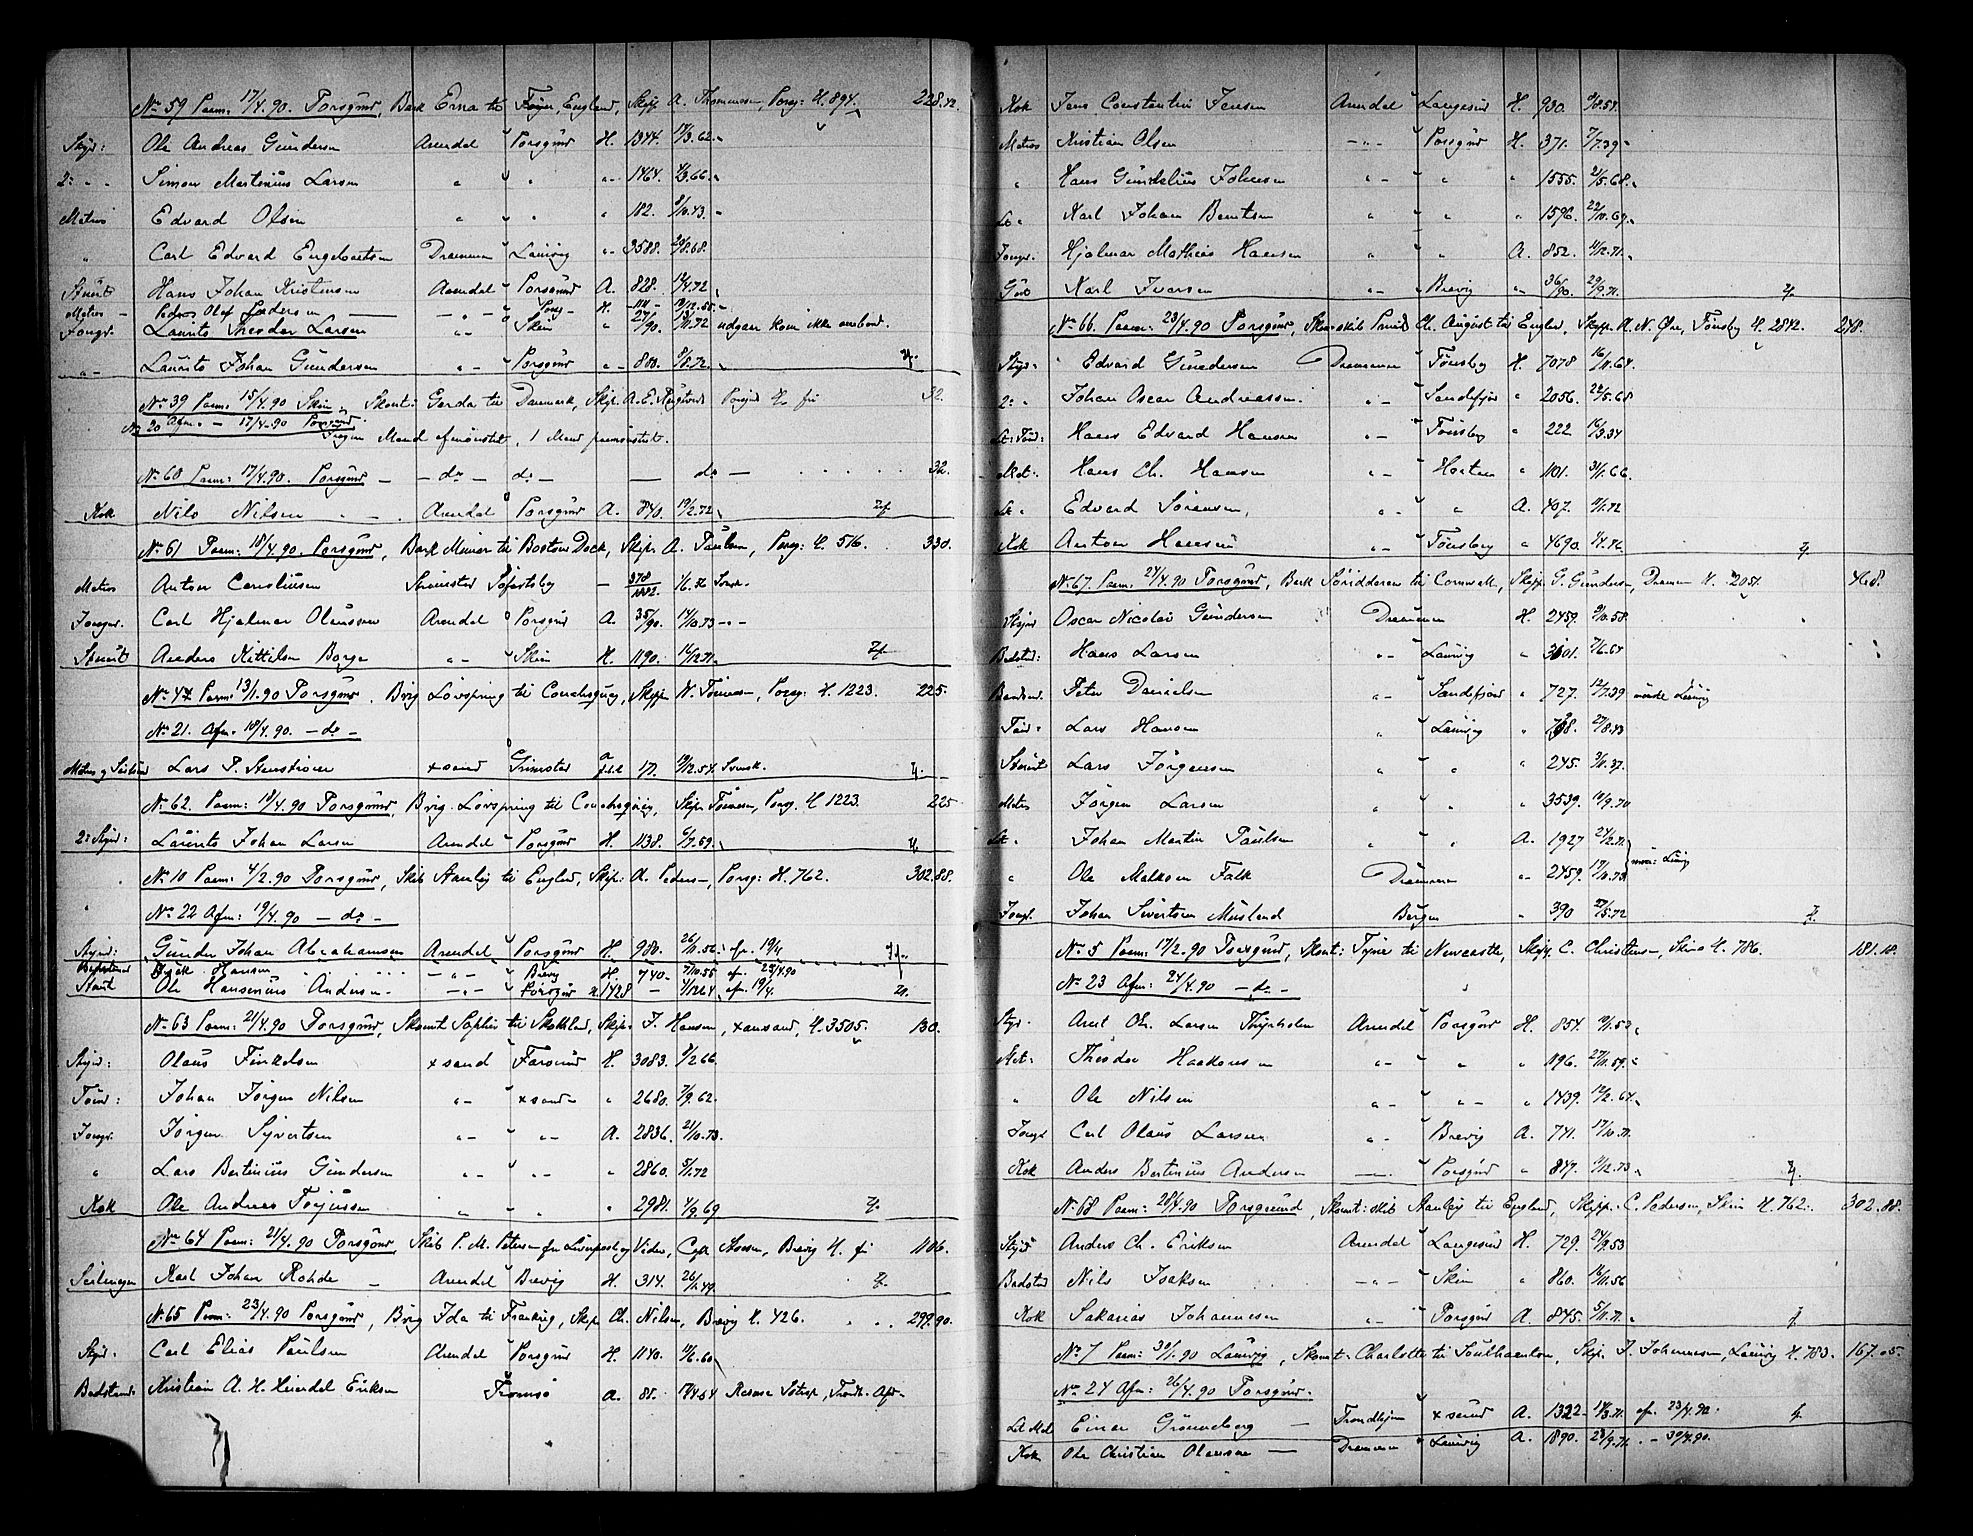 No 59 Paam: 17/4.90. Porsgrund, Bark Erna til England, Skip. A. Thomassen, Porsg: H. 894. 228.42.
Styrd: Ole Andreas Gundersen Arendal Porsgrund H. 1344. 17/3.62.
2: " Simon Martinius Larsen " " " 1464. 4/3.66.
Matros Edvard Olsen " " " 182. 8/10.43.
" Carl Edvard Engebretsen Drammen Laurvig " 3588. 29/8.68.
Stuert Hans Johan Kristensen Arendal Porsgrund A. 828. 14/4.72
Matros Olaf Pedersen Porsg H.
Jungm. Laurits Theodor Larsen " Skien " 27/90. 3/11.72 udgaar kom ikke ombord.
" Laurits Johan Gundersen " Porsgrund " 800. 8/8.72.
No 39 Paam: 15/4.90 Skien, Skonn: Gerda til Danmark, Skip. A. E. Porsgrund H. fri 32.
No 20 Afm. - 17/4-90 Porsgrund
Ingen Mand afmønstret, 1 Mand paamønstret.
No 60 Paam: 17/4.90. Porsgrund - do - do - do - 32.
Kok Nils Nilsen Arendal Porsgrund A. 840. 19/2.72
No 61 Paam: 18/4.90. Porsgrund, Bark Minor til Boston Dock, Skip. A. Paulsen, Porsg: H. 516. 330.
Matros Anton Corneliusen Grimstad - 378/1882. 1/6.56 Svensk.
Jungm. Carl Hjalmar Olaussen Arendal Porsgrund A. 35/90. 14/10.73 - " -
Stuert Anders Kittilsen Borge " Skien H. 1190. 14/12.71.
No 47 Paam: 13/1.90 Porsgrund. Brig Lövspring til Skip. N. Tönnesen, Porsg: H. 1223. 225.
No 21. Afm. 18/4.90. - do -
Matros & Seilmd Lars P. Stenström xsand Grimstad 17. 19/12.54. Svensk.
No 62. Paam: 18/4.90 Porsgrund, Brig Lövspring til Skip. Tönnesen, Porsg. H 1223. 225
2: Styrd: Laurits Johan Larsen Arendal Porsgrund H. 1138. 6/7.59.
No 10 Paam: 4/2.90 Porsgrund, Skib Stanley til England, Skip: A. Pedersen, Porsg: H. 762. 302.88.
No 22 Afm: 19/4.90 - do -
Styrd: Gunder Johan Abrahamsen Arendal Porsgrund H. 980. 26/11.52. af. 19/4
Isak Hansen - " - Brevig H. 740. 7/10.55 af. 23/4.90
Stuert Ole Hansenius Andersen - " - Porsgrund H. 1428 - 4/12.64. af. 19/4.
No 63 Paam: 21/4.90 Porsgrund, Skonnert Sophie til Skotland, Skip. J. Hansen, xansand, H. 3505. 130.
Styrd: Olaus Finkelsen xsand Farsund H. 3083. 8/2.66
Tömd: Johan Jörgen Nilsen " xsand " 2680. 7/9.62.
Jungm. Jörgen Syvertsen " " A. 2836. 21/10.73.
" Lars Bertinius Gundersen " " " 2860. 5/1.72
Kok Ole Andreas Torjussen " " " 2981. 4/9.69
No 64 Paam: 21/4.90 Porsgrund Skib P. M. Petersen fra Liverpool og Vider, Capt Brevig H. fri 1106.
Seilmager Karl Johan Rohde - Arendal Brevig H. 314. 26/1.49.
No 65 Paam: 23/4.90 Porsgrund, Brig Ida til Frankrig, Skip. Ch. Nilsen, Brevig H. 426. 299.90.
Styrd: Carl Elias Paulsen Arendal Porsgrund H. 1140. 11/6.60
Badstmd. Kristian A. H. Heierdal Eriksen Tromsö A. 85. 17/4.54
Kok Jens Constantin Jensen Arendal Langesund H. 930. 9/8.57.
Matros Kristian Olsen - " - Porsgrund H. 371. 7/7.39
" Hans Gundelius Johnsen " " " 1555. 21/5.68.
Lt " Karl Johan Berntsen " " " 1596. 22/10.69.
Jungm. Hjalmar Mathias Hansen " " A. 852. 11/12.71.
Gut Karl Iversen " Brevig " 36/90. 29/9.71.
No 66. Paam: 23/4.90 Porsgrund, Skonnertskib Prinds Ch. August til England, Skipp. A. N. Øre, Tönsberg H. 2842. 248.
Styrd: Edvard Gundersen Drammen Tönsberg H. 7078 16/11.64.
2: " Johan Oscar Andreassen. " Sandefjord " 2056. 22/5.68
Lt: Tömd: Hans Edvard Hansen " Tönsberg " 222 16/3.34
Mat: Hans Ch. Hansen " Horten " 1101. 31/1.66.
Lt " Edvard Sörensen, " " A. 407. 11/1.72
Kok Anton Hansen " Tönsberg " 4690. 4/4.76.
No 67. Paam: 24/4.90 Porsgrund, Bark Söridderen til Cornwall, Skipp. G. Gundersen, Drammen H. 2051. 468.
Styrd Oscar Nicolai Gundersen Drammen H. 2459. 9/10.58.
Badstmd: Hans Larsen " Laurvig " 3101. 7/6.64
Peter Danielsen " Sandefjord " 727. 12/7.39 Laurvig
Tömd: Lars Hansen " Laurvig " 768. 27/8.43
Stuert Lars Jörgensen " " " 245. 3/11.37.
Matros Jörgen Larsen " " " 3539. 10/9.70
Lt " Johan Martin Paulsen " " A. 1927 24/2.71.
" Ole Mathisen Falk Drammen " 2459. 17/11.73
Jungm. Johan Sivertsen Musland Bergen " 390 27/5.72
No 5 Paam: 17/2.90 Porsgrund, Skonn: Tyne til Newcastle, Skip. C. Christensen, Skien H. 786. 181.18.
No 23 Afm: 24/4.90 - do -
Styr. Arnt Ch. Larsen Thyholm Arendal Porsgrund H. 854. 10/1.52.
Mat: Theodor Haakonsen " " " 1196. 27/11.59.
" Ole Nilsen " " " 1439. 12/2.64.
Jungm. Carl Olaus Larsen " Brevig A. 741. 17/10.71.
Kok Anders Bertinius Andersen Porsgrund " 847. 11/12.73
No 68 Paam: 26/4.90 Porsgrund, Skonnt: skib Stanley til England, Skipp: C. Pedersen, Skien H. 762. 302.88.
Styrd Anders Ch. Eriksen Arendal Langesund H. 729. 24/9.53
Badstmd Nils Isaksen - " - Skien " 860. 16/11.56
Kok Sakarias Johannesen " Porsgrund A. 845. 5/11.71.
No 7 Paam: 30/1.90 Laurvig, Skonnt: Charlotte til Southampton, Skip. J. Johannesen, Laurvig H. 783. 167.05.
No 24 Afm: 26/4.90 Porsgrund.
Lt Mat Einar Grönneberg - Trondhjem xsund A. 1322 - 11/3.71. af. 23/4.90.
Kok Ole Christian Olausen - Drammen Laurvig A. 1890. 23/9.71. - 30/4.90.